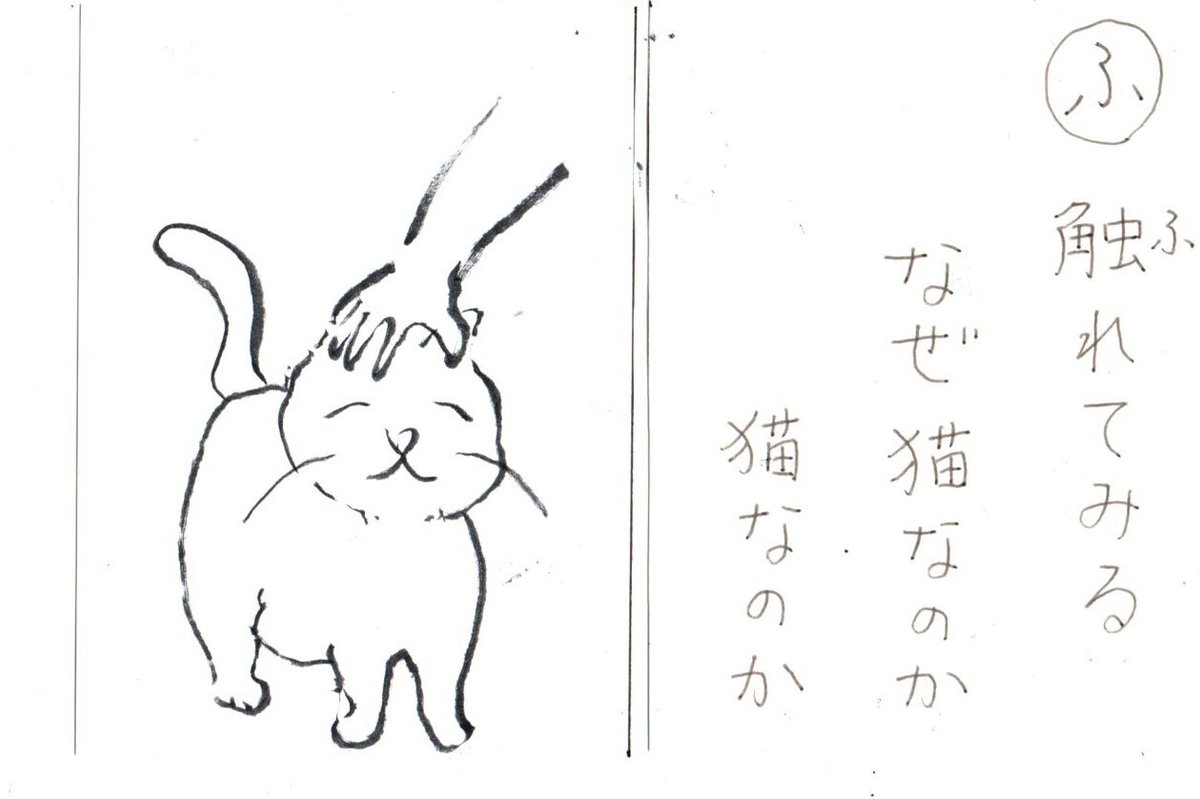 ふ
触れてみる
ふ
なぜ猫なのか
猫なのか